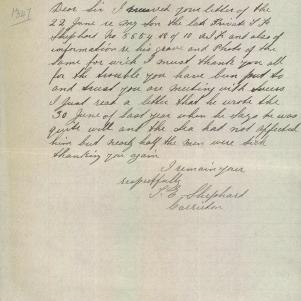 1347
Dear Sir I received your letter of the
22 June re my son the late Private S. H
Shephard No 8854 18 of 10 Batt and also of
information re his grave and Photo of the
same for wich I must thank you all
for the trouble you have bun put to
and trust you are meeting with sucess
I just read a letter that he wrote the
30 June of last year when he says he was
quite well and the sea had not affected
him but nearly half the men were sick
thanking you again
I remain your
respectfully
S. E. Shephard
Carrieton